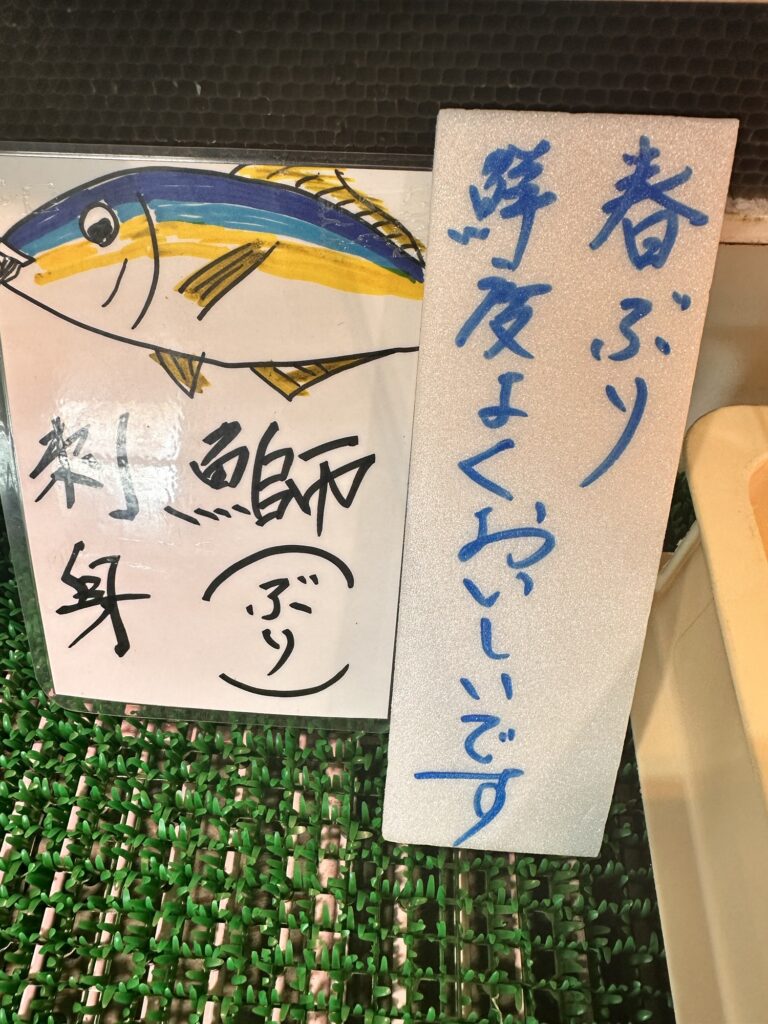 春ぶり
鮮度よくおいしいです
鰤
(ぶり)
刺身